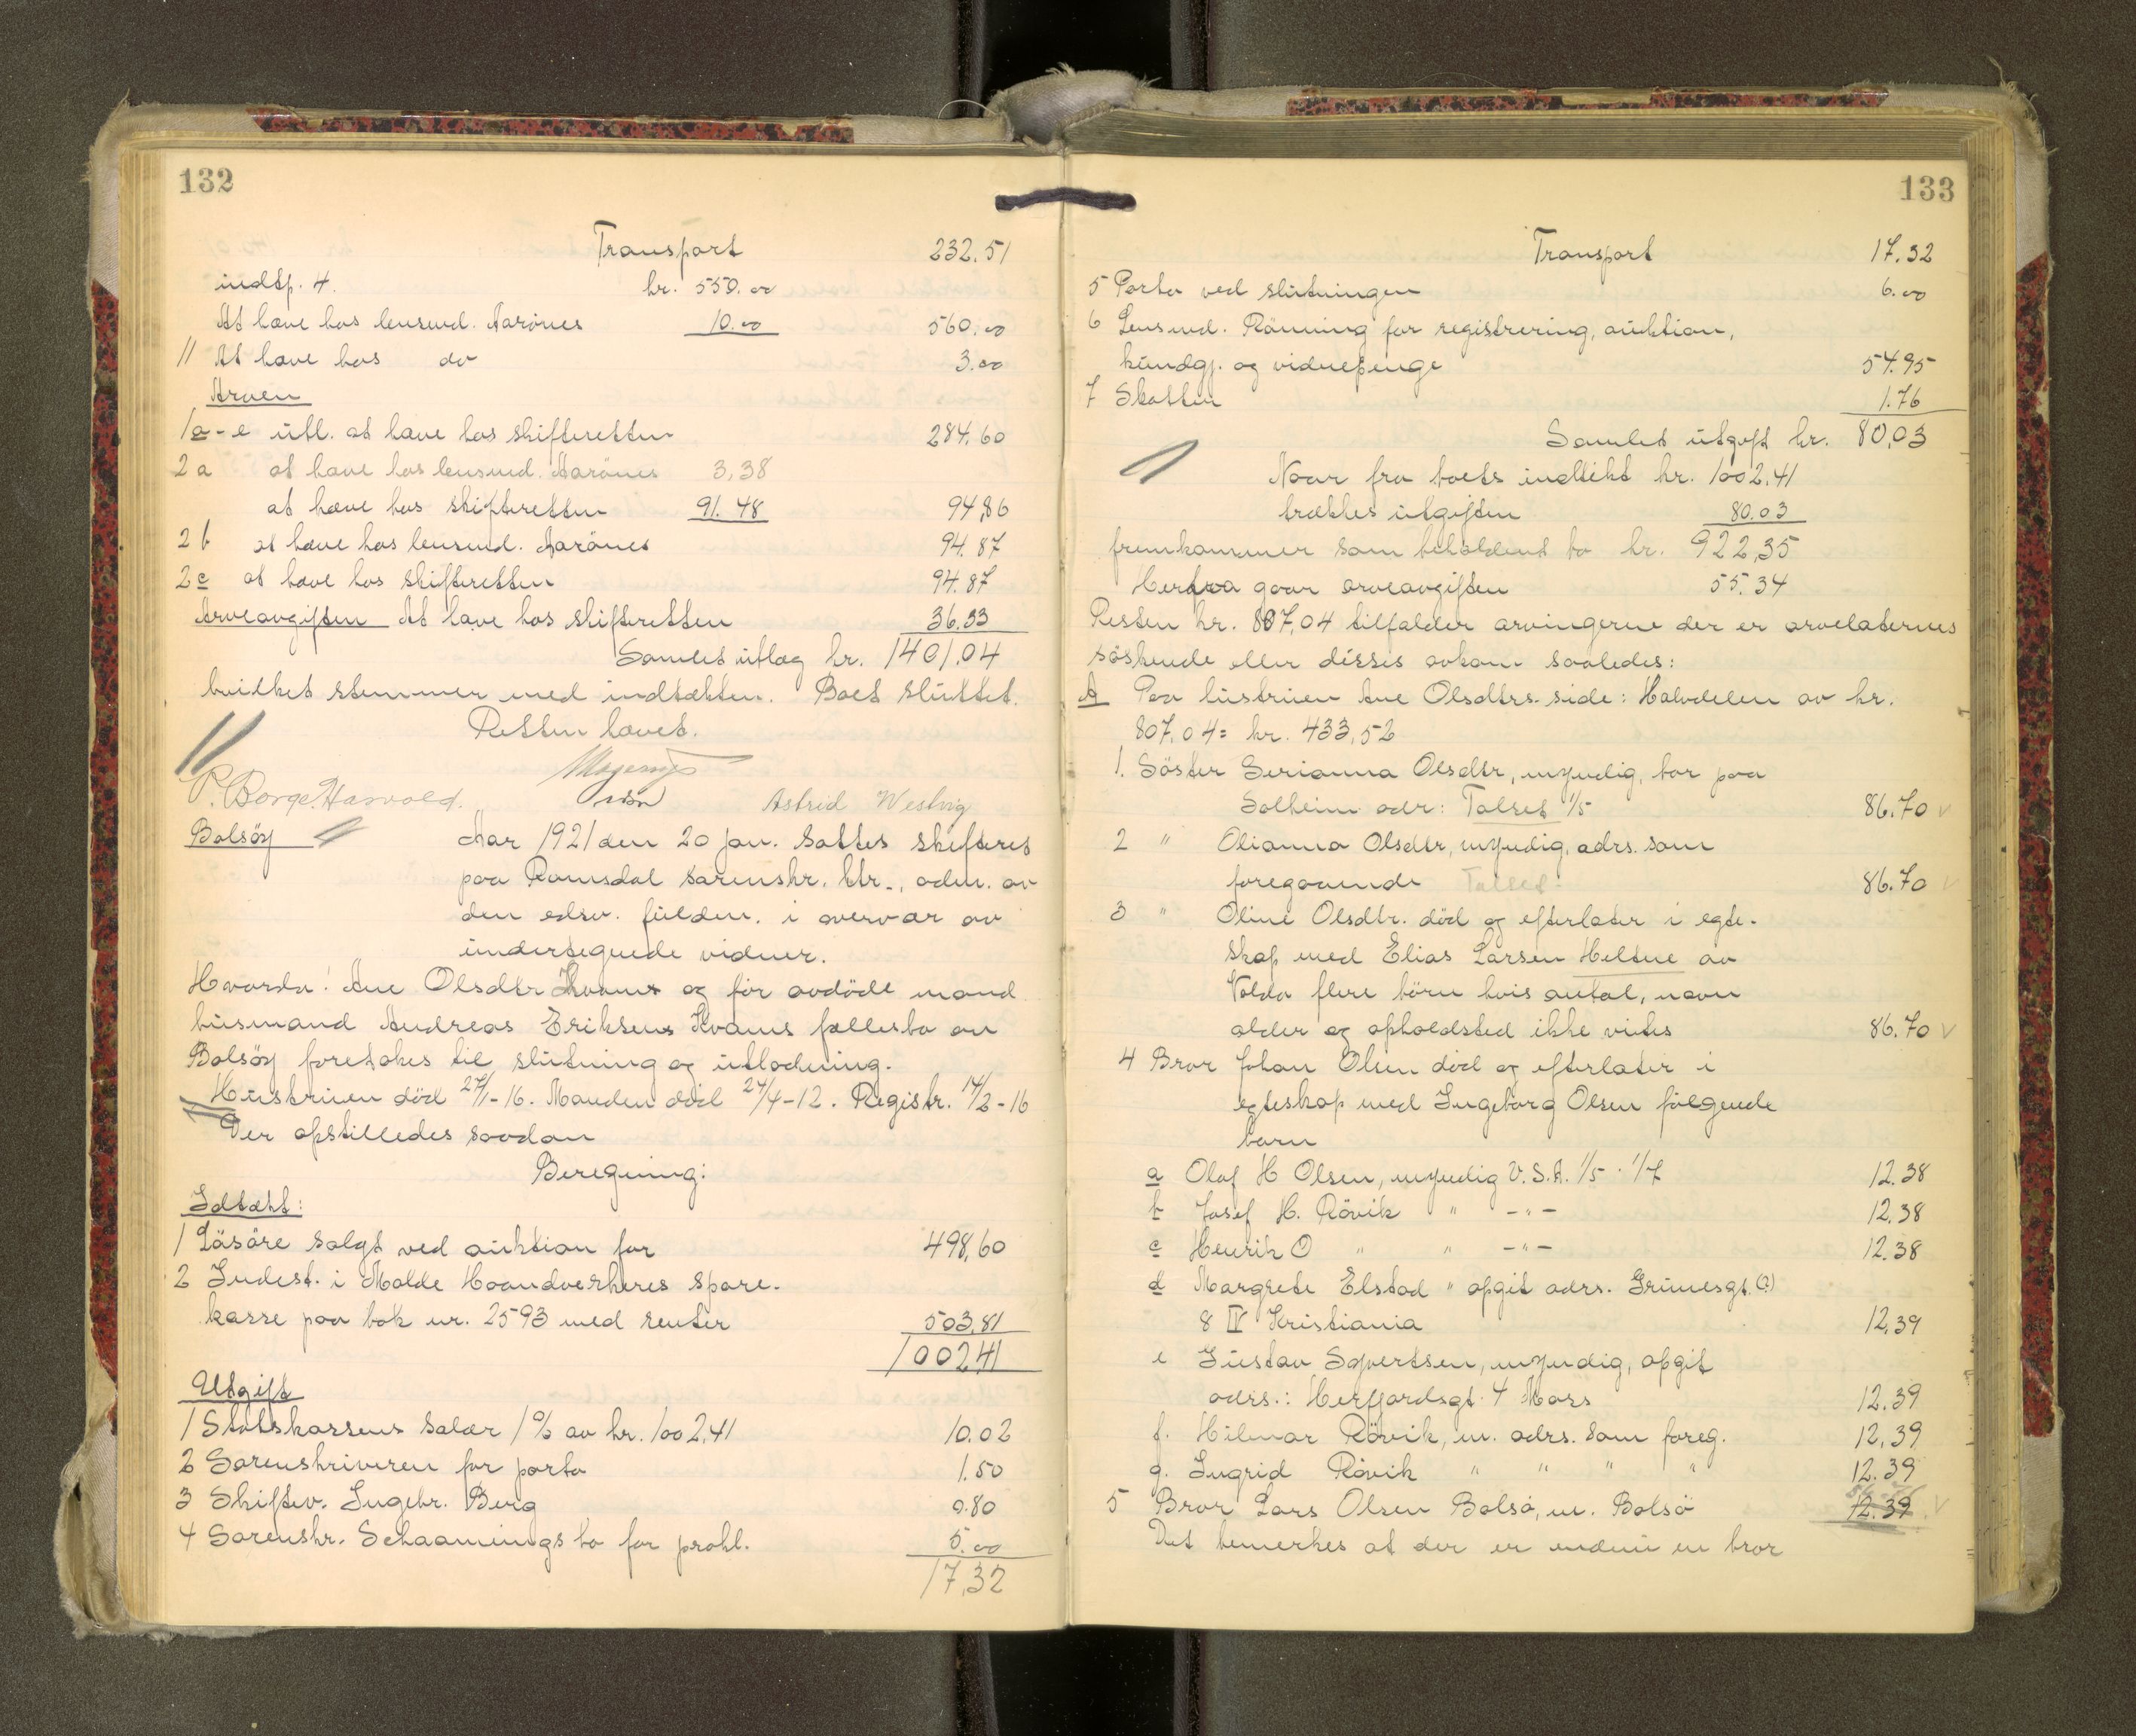 132
Transport 232.51
indtp. 4. kr. 550.00
At hæve hos lensmd. Aarönes 10.00 560.00
11 At hæve hos do 3.00
Arven
1a-e utl. at hæve hos skifteretten 284.60
2 a at hæve hos lensmd. Aarönes 3,38
at hæve hos skifteretten 91.48 94,86
2 b at hæve hos lensmd. Aarönes 94.87
2 c at hæve hos skifteretten 94.87
Arveavgiften At hæve hos skifteretten 36.33
Samlet utlæg kr. 1401.04
hvilket stemmer med indtækten. Boet sluttet.
Retten hævet.
P. Borge Harvold. Astrid Westvig
Bolsöy Aar 1921 den 20 jan. Sattes skifteret
paa Romsdal sorenskr. ktr., adm. av
den edsv. fuldm. i overvær av
undertegnede vidner.
Hvorda: Ane Olsdtr Kvams og för avdöde mand
husmand Andreas Eriksens Kvams fællesbo av
Bolsöy foretokes til slutning og utlodning.
Hustruen död 27/1-16. Manden död 24/4-12. Registr. 14/2-16
Der opstilledes saadan
Beregning:
Idtækt:
1 Lösöre solgt ved auktion for 498,60
2 Indest. i Molde Haandverkeres Spare-
kasse paa bok nr. 2593 med renter 503,81
1002.41
Utgift
1 Statskassens salær 1% av kr. 1002,41 10.02
2 Sorenskriveren for porto 1.50
3 Skiftev. Ingebr. Berg 0.80
4 Sorenskr. Schaannings bo for prokl. 5.00
17,32
133
Transport 17.32
5 Porto ved slutningen 6.00
6 Lensmd. Rönning for registrering, auktion,
kundgj. og vidnepenge 54.95
7 Skatten 1.76
Samlet utgift kr. 80,03
Naar fra boets indtekt kr. 1002,41
trækkes utgiften 80.03
fremkommer som beholdent bo kr. 922,35
Herfra gaar arveavgiften 55.34
Resten kr. 867,04 tilfalder arvingerne der er arvelaternes
söskende eller disses avkom saaledes:
A Paa hustruen Ane Olsdtrs. side: Halvdelen av kr.
807,04= kr. 433,52
1. Söster Serianna Olsdtr, myndig, bor paa
Solheim adr: Talset 1/5 86.70
2 " Olianna Olsdtr, myndig, adrs. som
foregaaende Talset 86.70
3 " Oline Olsdtr. död og efterlater i egte-
skap med Elias Larsen Heltne av
Volda flere börn hvis antal, navn
alder og opholdsted ikke vites 86.70
4 Bror Johan Olsen död og efterlater i
egteskap med Ingeborg Olsen fölgende
barn
a Olaf H Olsen, myndig U.S.A. 1/5 · 1/7 12.38
b Josef H. Rövik " -"- 12.38
c Henrik O " " -"- 12.38
d Margrete Elstad " opgit adrs. Grünesgt. (?)
8 IV Kristiania 12,39
e Gustav Syvertsen, myndig, opgit
adrs.: Herfjordsgt. 4 Moss 12.39
f. Hilmar Rövik, m. adrs. som foreg. 12,39
g. Ingrid Rövik " " " " 12.39
5 Bror Lars Olsen Bolsö, m. Bolsö 12.39
Det bemerkes at der er endnu en bror